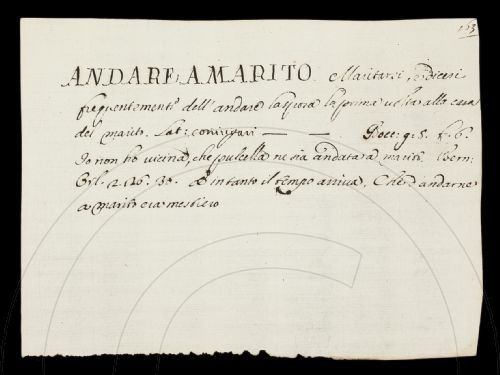 163
ANDARE A MARITO. Maritarsi, e dicesi
frequentemente dell'andare la sposa la prima volta alla casa
del marito. Lat. coniugari — — Bocc: g: 5. f. 6.
Io non ho vicina, che pulcella ne sia andata a marito. Bern:
Orl. 2. 26. 30. intanto il tempo arriva, Che d'andarne
a marito era mestiero